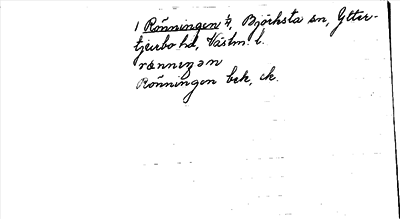 1 Rönningen h, Björksta sn, Ytter-
tjurbo hd, Västm. l.
rænneŋən
Rönningen bek, ek.